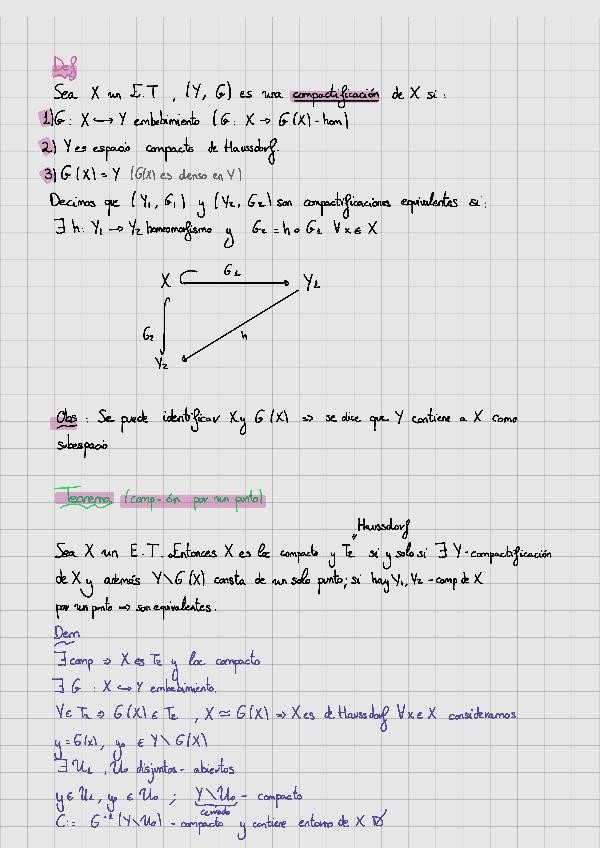 Def
Sea X un E.T , (Y, G) es una compactificación de X si:
1) G: X ↪ Y embebimiento (G: X → G(X)-hom)
2) Y es espacio compacto de Haussdorf.
3) G(X) = Y (G(X) es denso en Y)
Decimos que (Y₁, G₁) y (Y₂, G₂) son compactificaciones equivalentes si:
∃ h: Y₁ → Y₂ homeomorfismo y G₂ = h ∘ G₁ ∀x ∈ X
X G₁ Y₁
G₂ h
Y₂
Obs : Se puede identificar X y G(X) ⇒ se dice que Y contiene a X como
subespacio
Teorema (comp-ón por un punto)
Haussdorf
Sea X un E.T. Entonces X es loc compacto y T₂ si y solo si ∃ Y-compactificación
de X y además Y\G(X) consta de un solo punto; si hay Y₁, Y₂ - comp de X
por un punto ⇒ son equivalentes.
Dem
∃ comp ⇒ X es T₂ y loc compacto
∃ G : X ↪ Y embebimiento.
Y ∈ T₂ ⇒ G(X) ∈ T₂ , X ≃ G(X) ⇒ X es de Haussdorf ∀x ∈ X consideramos
y = G(x), y₀ ∈ Y\G(X)
∃ U₁, U₀ disjuntos - abiertos
y ∈ U₁, y₀ ∈ U₀ ; Y\U₀ - compacto
cerrado
C := G⁻¹(Y\U₀) - compacto y contiene entorno de X